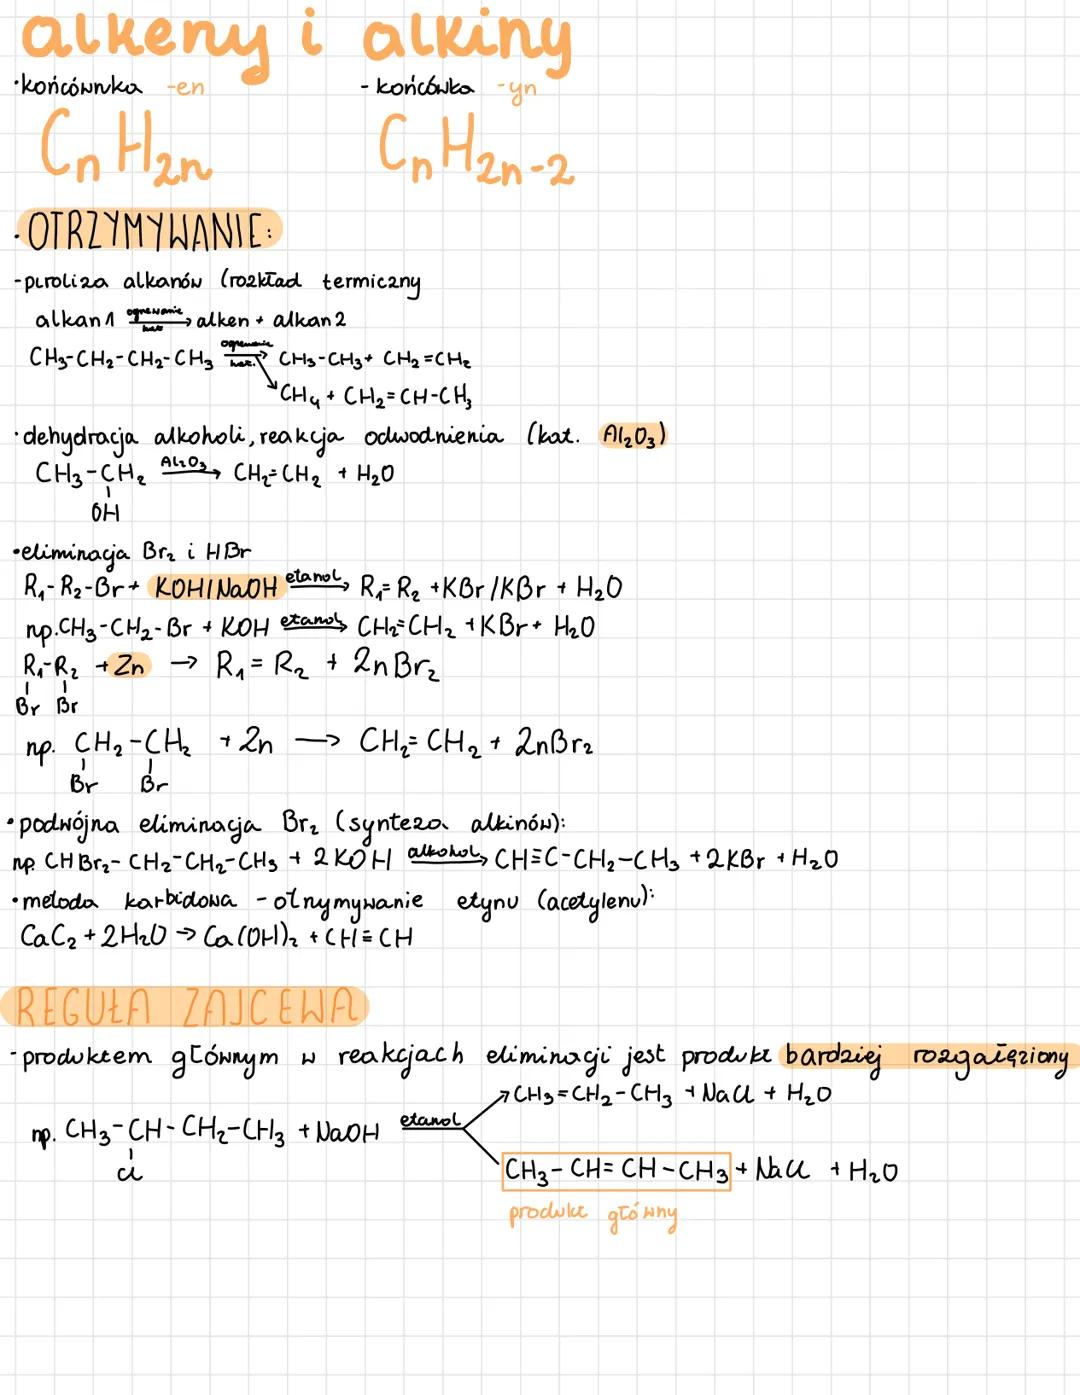 alkeny i alkiny
·końcównka -en - końcówka -yn
CnH2n CnH2n-2
·OTRZYMYWANIE:
-piroliza alkanów (rozkład termiczny
alkan1 ogrzewanie → alken + alkan2
CH3-CH2-CH2-CH3 ogrzewanie kat. → CH3-CH3+ CH2=CH2
CH4 + CH2=CH-CH3
·dehydracja alkoholi, reakcja odwodnienia (kat. Al2O3)
CH3-CH2 Al2O3 → CH2=CH2 + H2O
OH
·eliminacja Br2 i HBr
R1-R2-Br+ KOH/NaOH etanol → R1=R2 +KBr/KBr + H2O
np.CH3-CH2-Br + KOH etanol → CH2=CH2 +KBr+ H2O
R1-R2 +Zn → R1=R2 + ZnBr2
Br Br
np. CH2-CH2 +Zn → CH2=CH2 + ZnBr2
Br Br
·podwójna eliminacja Br2 (synteza alkinów):
np. CHBr2-CH2-CH2-CH3 + 2KOH alkohol → CH≡C-CH2-CH3 +2KBr +H2O
·metoda karbidowa -otrzymywanie etynu (acetylenu):
CaC2+2H2O → Ca(OH)2 +CH≡CH
REGUŁA ZAJCEWA
-produktem głównym w reakcjach eliminacji jest produkt bardziej rozgałęziony
CH3=CH2-CH3 +NaCl + H2O
np. CH3-CH-CH2-CH3 +NaOH etanol
Cl
CH3-CH=CH-CH3 + NaCl +H2O
produkt główny